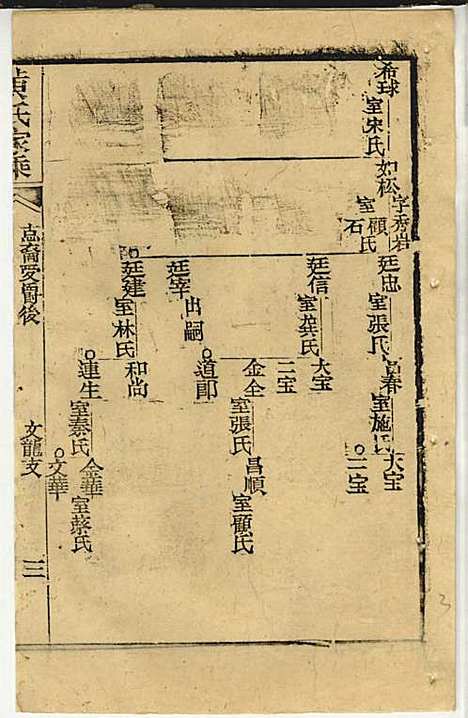 希球
室宋氏
如松
字秀岩
室顧氏
石
廷忠
室張氏
富春
室施氏
大宝
二宝
廷信
室龚氏
大宝
二宝
金全
室張氏
昌順
室顧氏
廷宰
出嗣
道郎
廷建
室林氏
和尚
連生
室秦氏
金華
室蔡氏
文華
黄氏家乘
裔愛爵後
文龍支
三
3